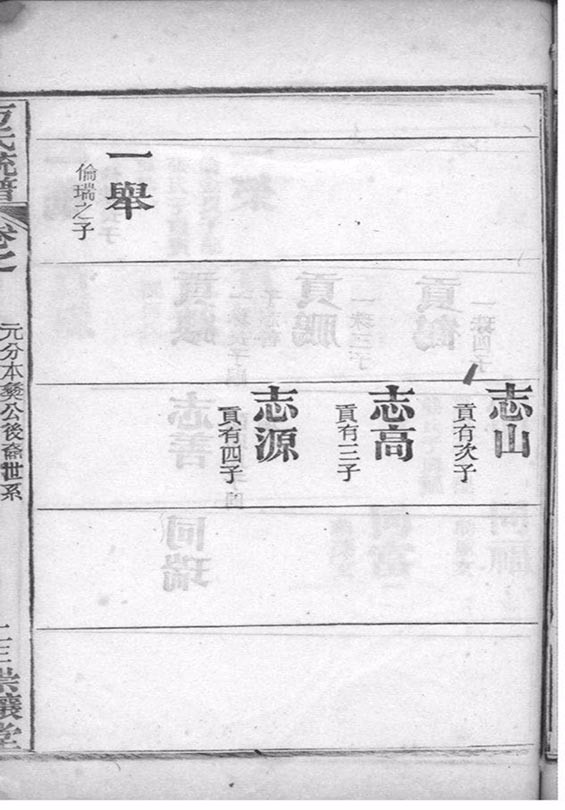 志山
貢有次子
志高
貢有三子
志源
貢有四子
一舉
倫瑞之子
氏統譜
卷之
元分本
公後裔世系
堂